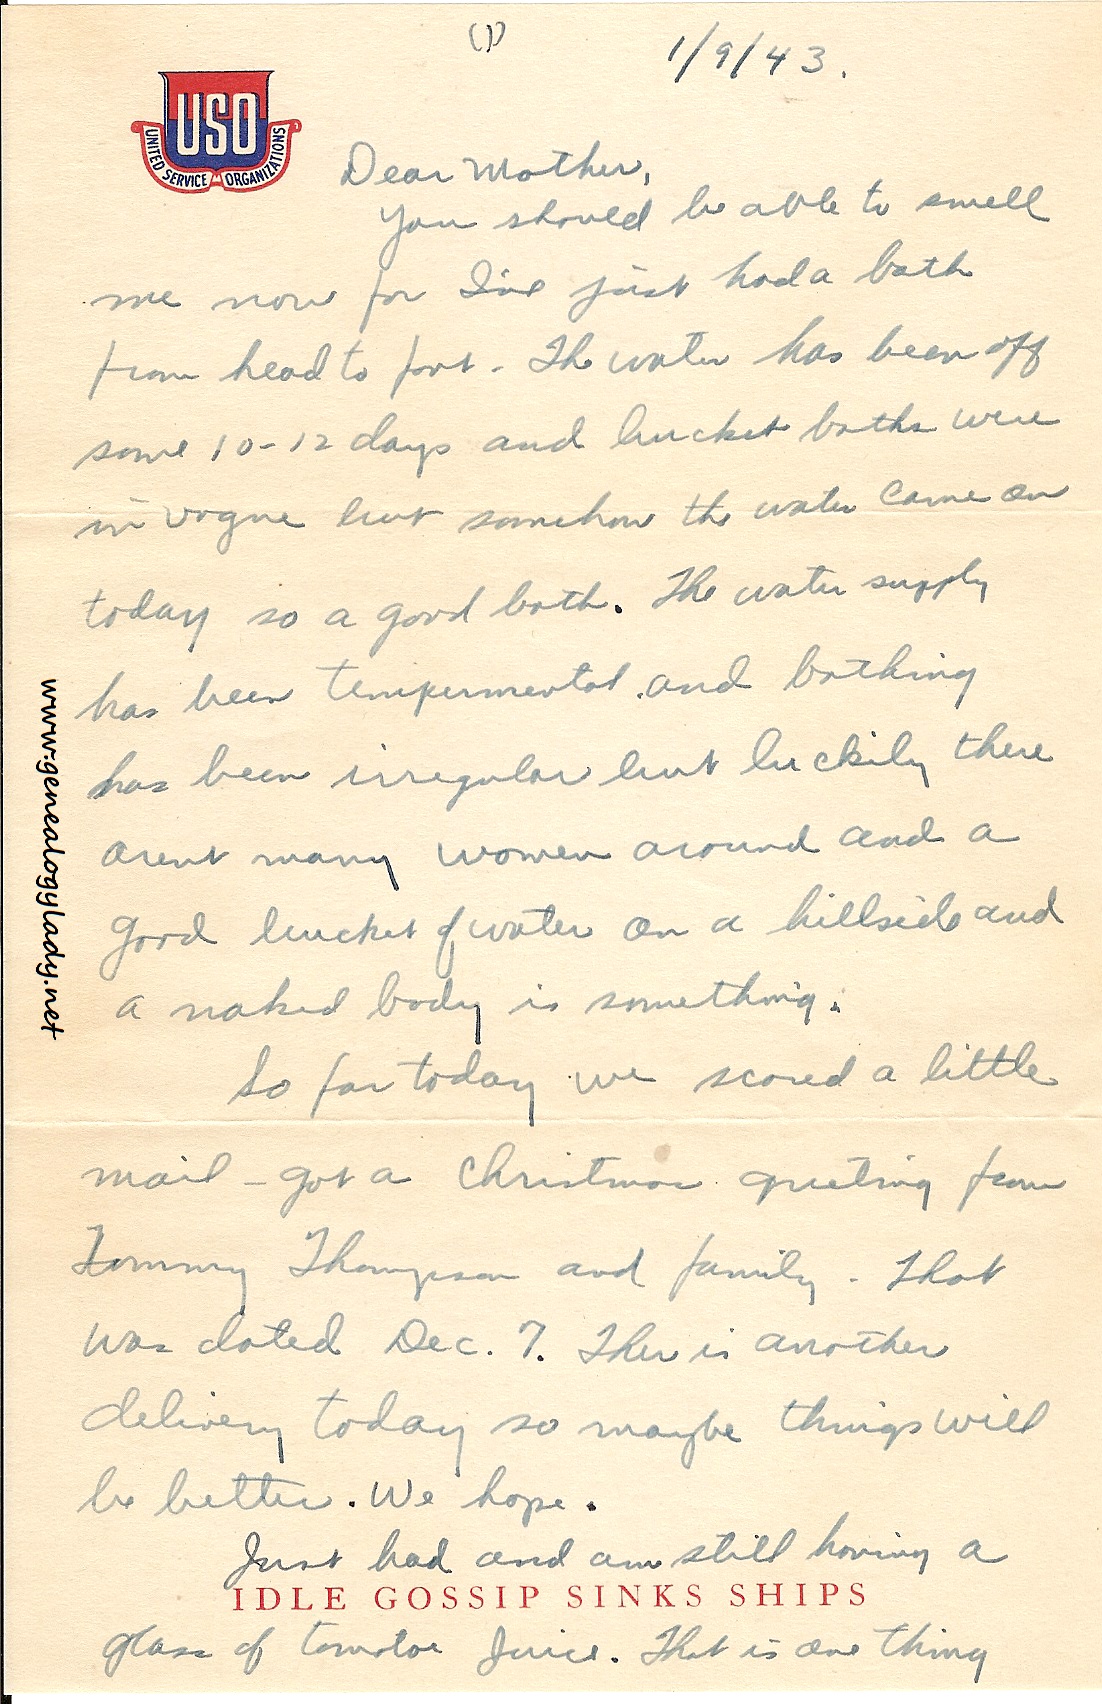 (1)
1/9/43.
USO
UNITED SERVICE ORGANIZATIONS
Dear Mother,
You should be able to smell
me now for I've just had a bath
from head to foot. The water has been off
some 10-12 days and bucket baths were
in vogue but somehow the water came on
today so a good bath. The water supply
has been tempermental and bathing
has been irregular but luckily there
arent many women around and a
good bucket of water on a hillside and
a naked body is something.
So far today we scored a little
mail - got a Christmas greeting from
Tommy Thompson and family. That
was dated Dec. 7. Ther is another
delivery today so maybe things will
be better. We hope.
Just had and am still having a
IDLE GOSSIP SINKS SHIPS
glass of tomatoe juice. That is one thing
www.genealogylady.net